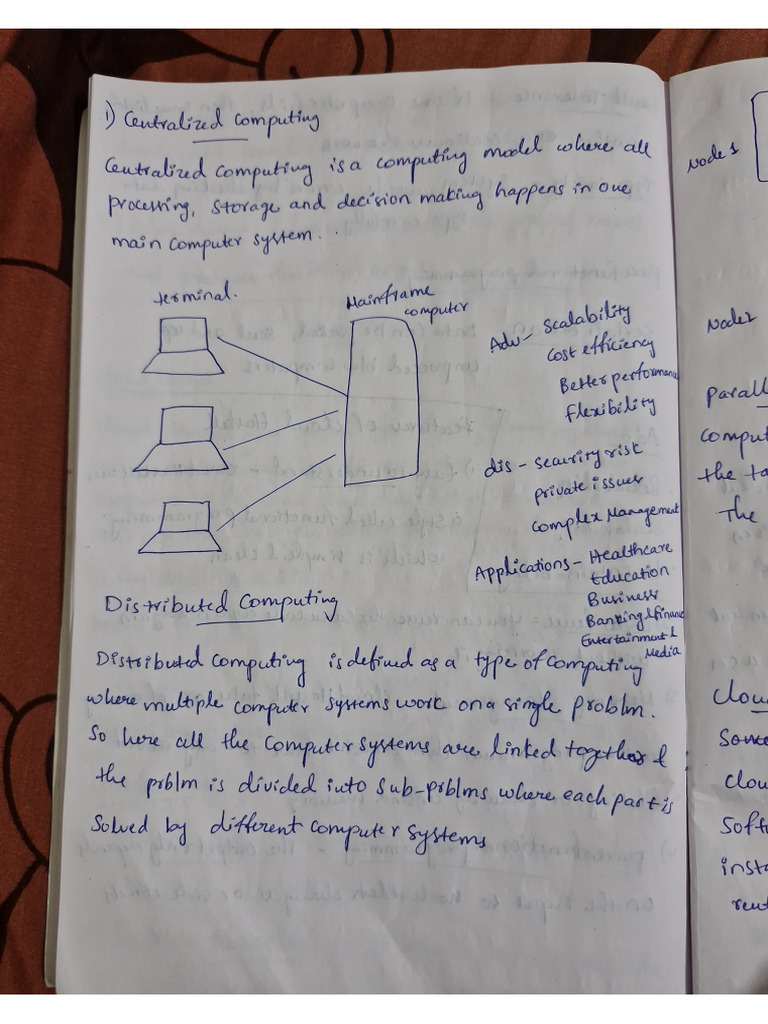 1) Centralized Computing
Centralized Computing is a computing model where all
processing, storage and decision making happens in one
main computer system.
terminal.
Mainframe
computer
Adv - Scalability
Cost efficiency
Better performance
Flexibility
dis - security risk
private issues
Complex Management
Applications - Healthcare
Education
Business
Banking & finance
Entertainment &
Media
Distributed Computing
Distributed Computing is defined as a type of computing
where multiple computer systems work on a single problm.
So here all the computer systems are linked together &
the prblm is divided into sub-prblms where each part is
solved by different computer systems
Node 1
Node2
Parall
comput
the ta
The
Clou
Clou
Soft
inst
rent